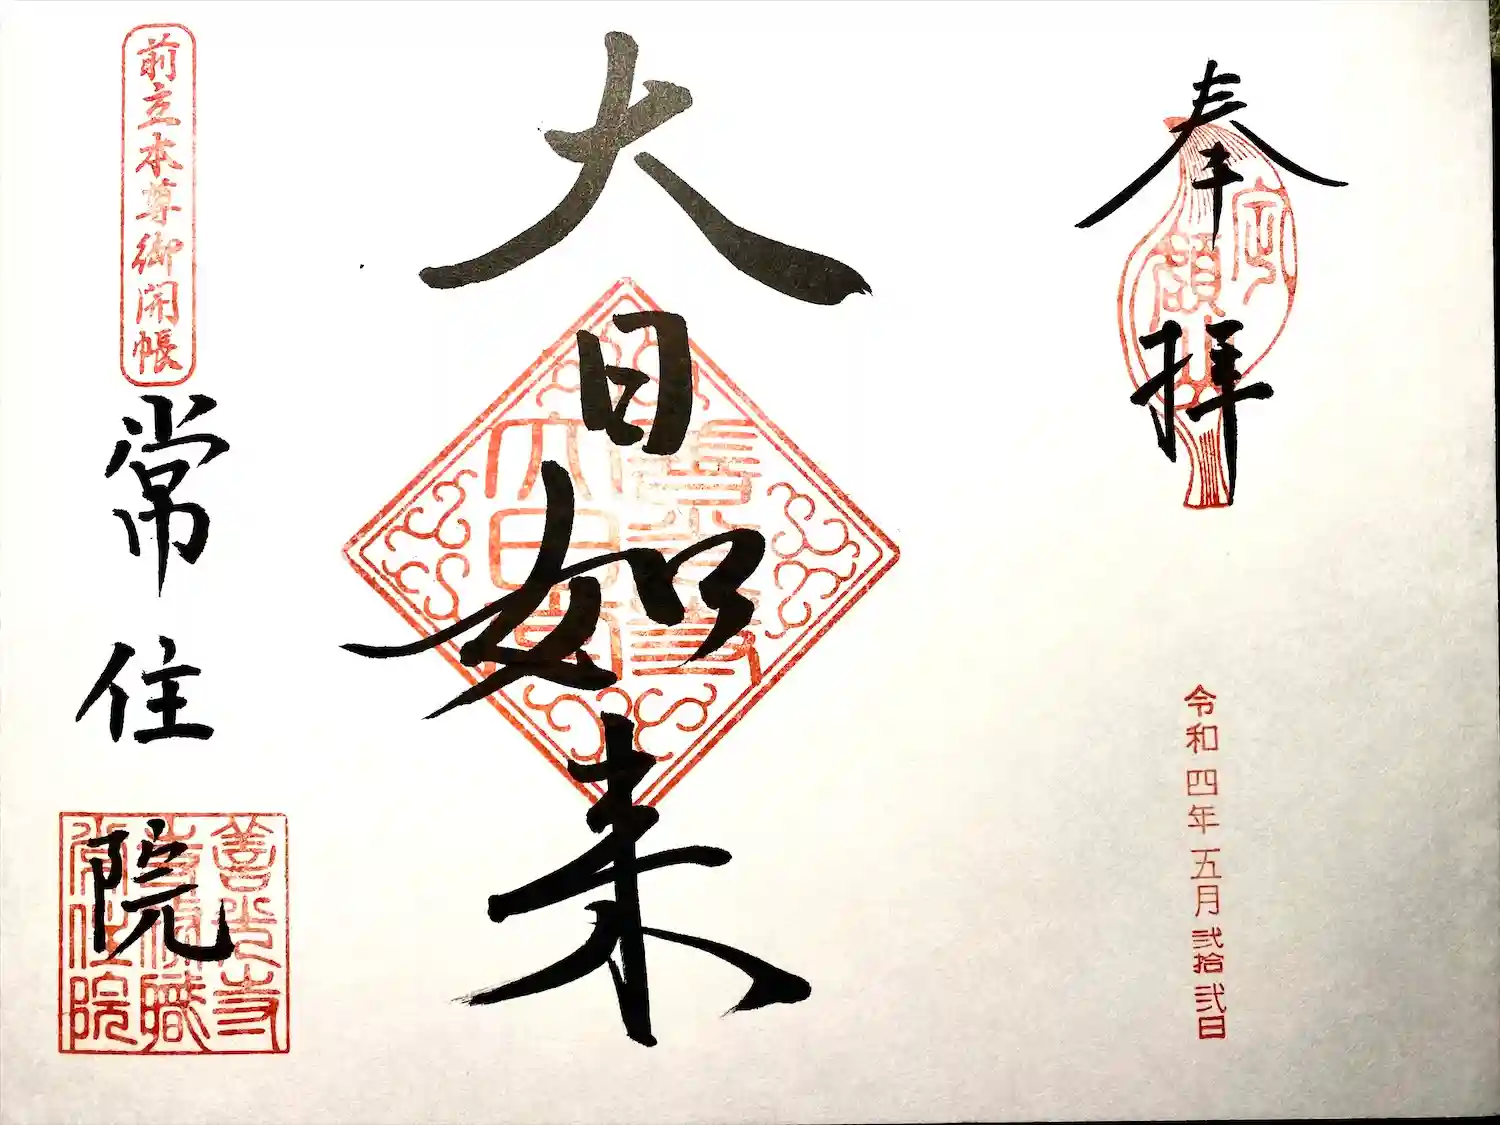 奉拝
定額山
令和四年五月弐拾弐日
大日如来
前立本尊御開帳
常住院
善光寺
常住院